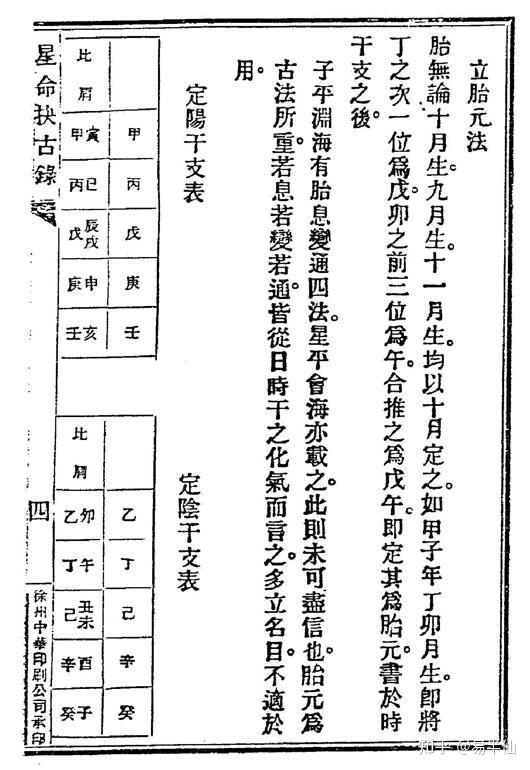 立胎元法
胎無論十月生。九月生。十一月生。均以十月定之。如甲子年丁卯月生。卽將
丁之次一位爲戊。卯之前三位爲午。合推之爲戊午。卽定其爲胎元。書於時
干支之後。
子平淵海有胎息變通四法。星平會海亦載之。此則未可盡信也。胎元爲
古法所重。若息若變若通。皆從日時干之化氣而言之。多立名目。不適於
用。
定陽干支表
甲
丙
戊
庚
壬
比肩
甲寅
丙巳
戊辰戌
庚申
壬亥
定陰干支表
乙
丁
己
辛
癸
比肩
乙卯
丁午
己丑未
辛酉
癸子
星命抉古錄
四
徐州中華印刷公司承印
知乎 @易半仙